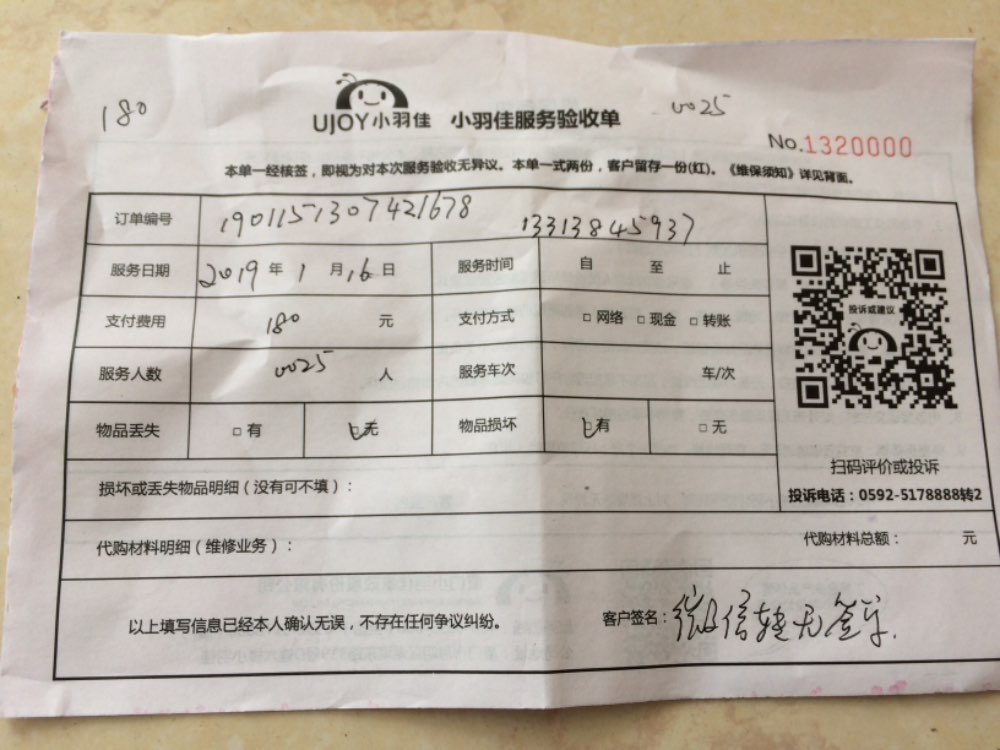 180
UJOY小羽佳 小羽佳服务验收单
0025
No.1320000
本单一经核签，即视为对本次服务验收无异议。本单一式两份，客户留存一份(红)。《维保须知》详见背面。
订单编号 1901151307421678 13313845937
服务日期 2019 年 1 月 16 日 服务时间 自 至 止
投诉或建议
支付费用 180 元 支付方式 □ 网络 □ 现金 □ 转账
服务人数 0025 人 服务车次 车/次
物品丢失 □ 有 □ 无 物品损坏 □ 有 □ 无
扫码评价或投诉
损坏或丢失物品明细（没有可不填）：
投诉电话：0592-5178888转2
代购材料明细（维修业务）： 代购材料总额： 元
以上填写信息已经本人确认无误，不存在任何争议纠纷。 客户签名：微信转无签字.